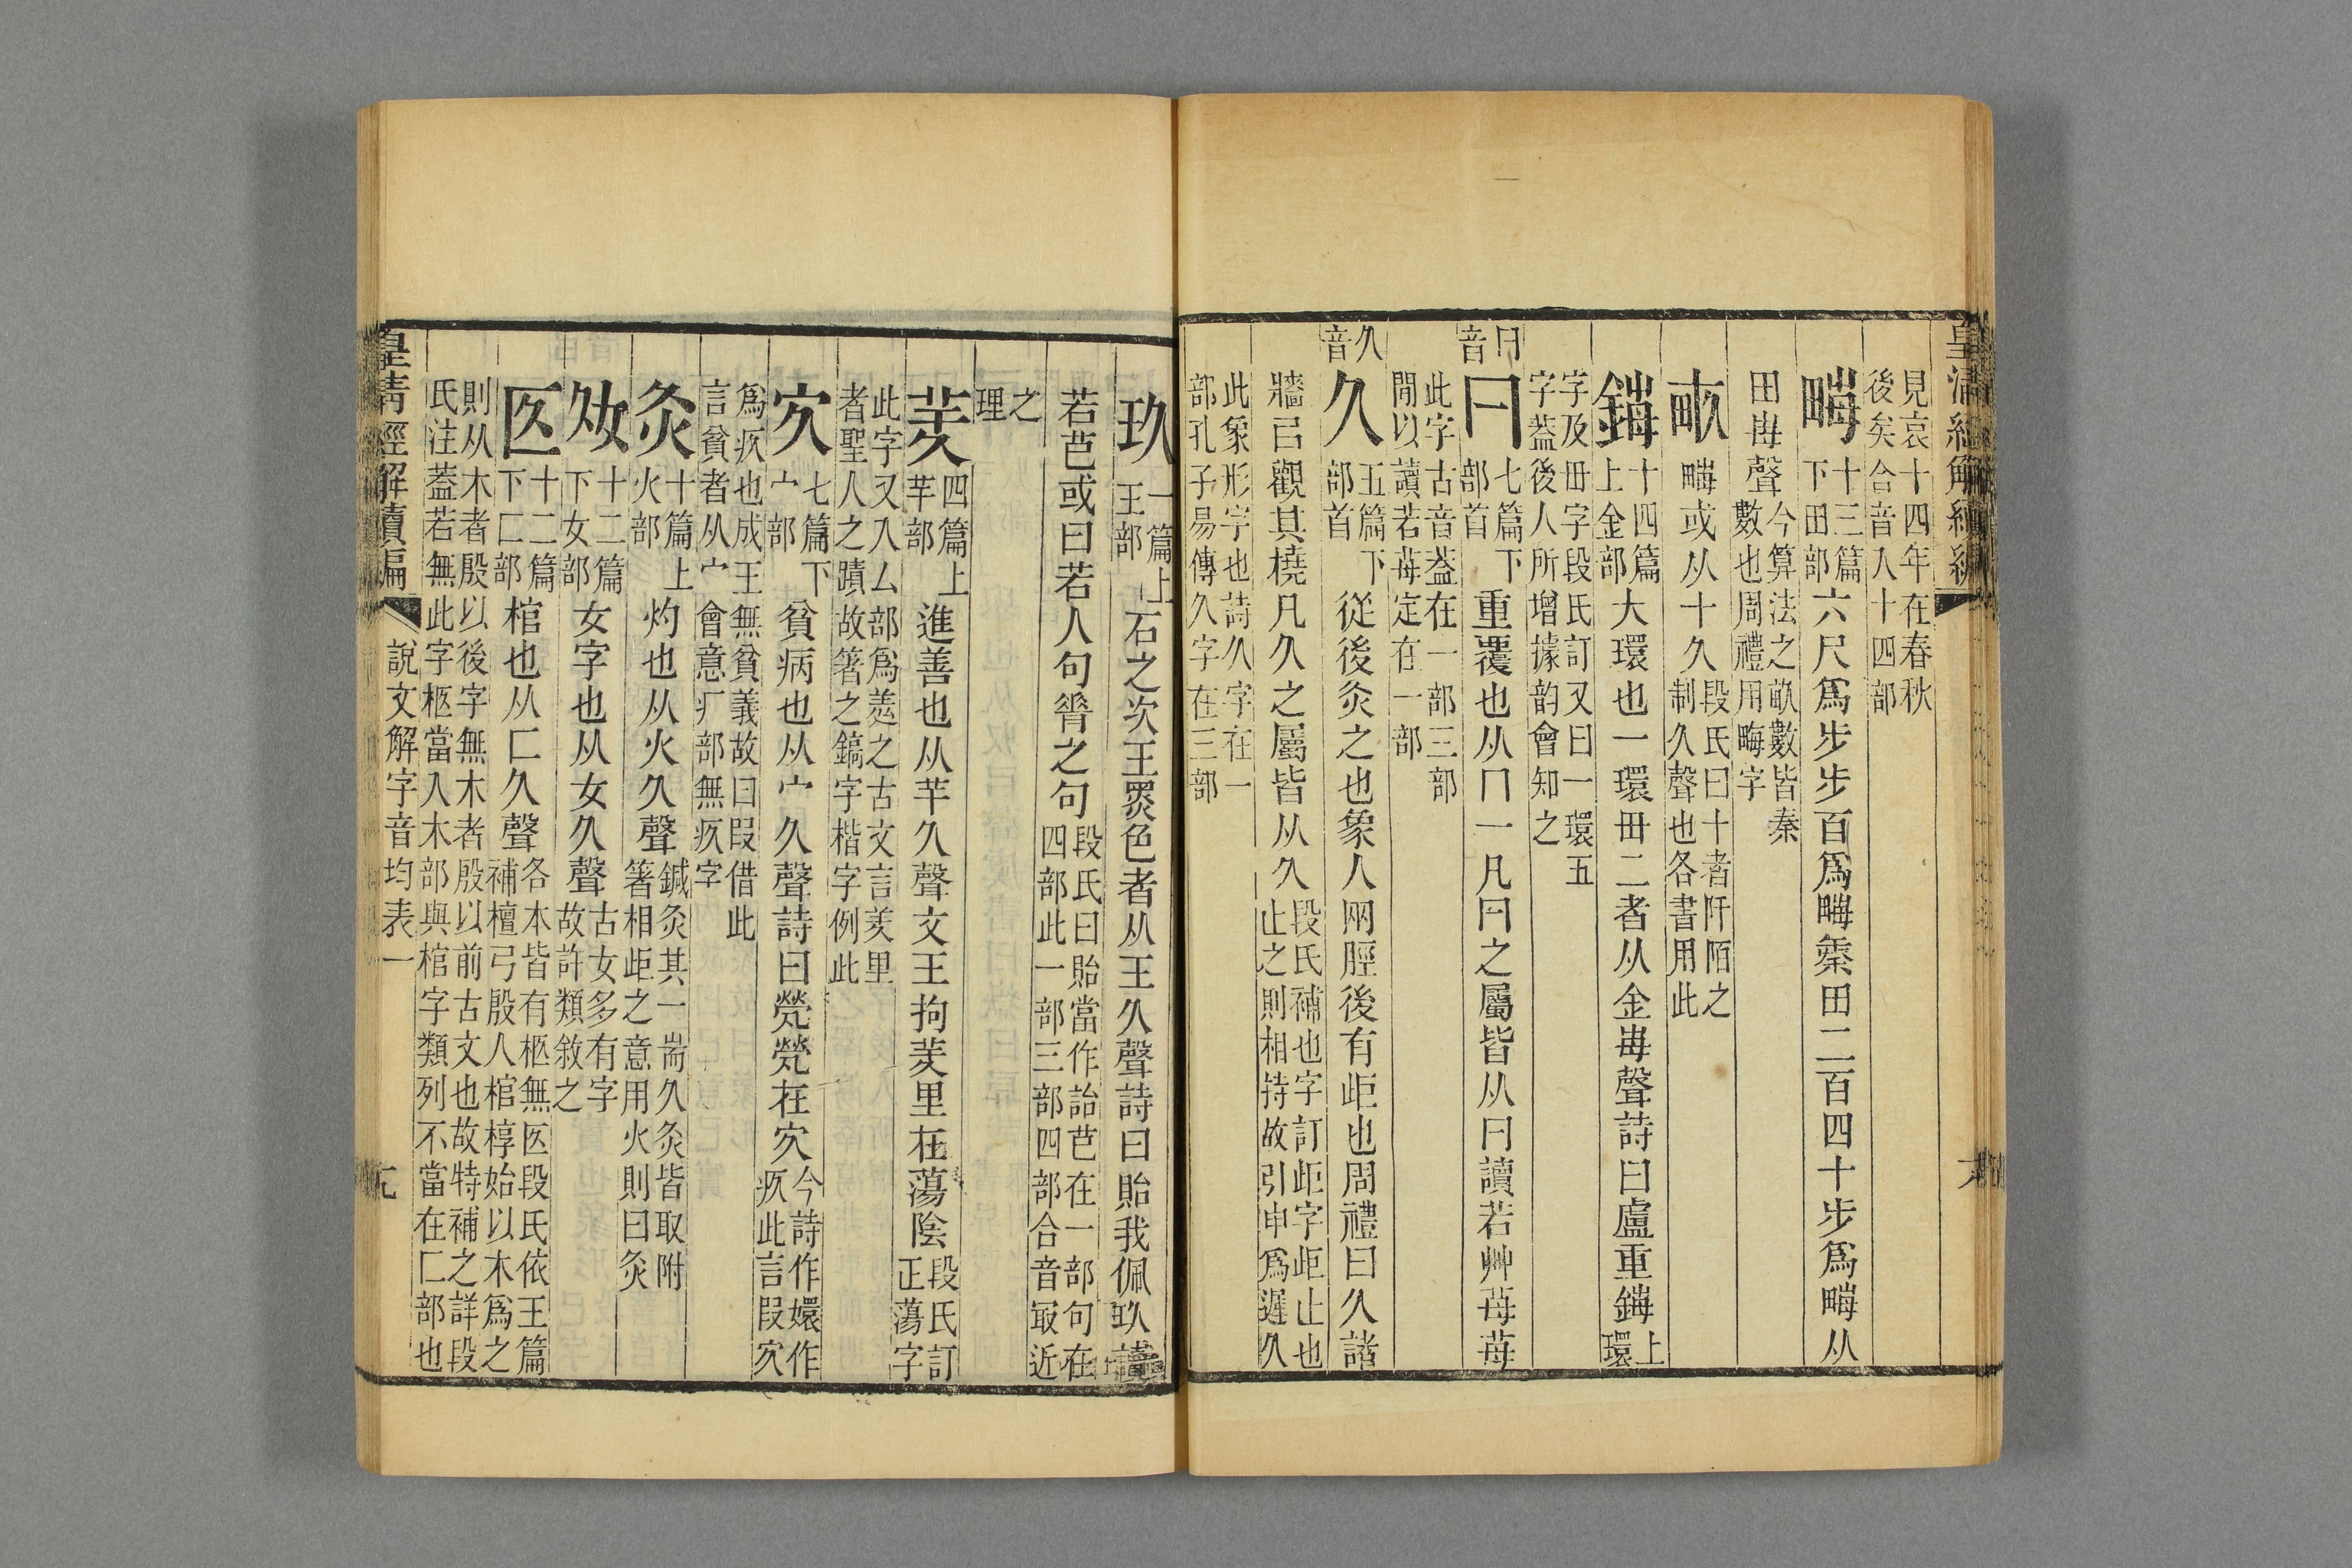 見哀十四年在春秋
後矣合音入十四部
畮十三篇下田部六尺爲步步百爲畮秦田二百四十步爲畮从
田每聲今算法之畝數皆秦數也周禮用畮字
畝畮或从十久段氏曰十者阡陌之制久聲也各書用此
鋂十四篇上金部大環也一環毌二者从金每聲詩曰盧重鋂環上
字及毌字段氏訂又曰一環五字蓋後人所增據韵會知之
冃音
冃七篇下部首重覆也从冂一凡冃之屬皆从冃讀若艸苺苺
此字古音蓋在一部三部閒以讀若苺定在一部
久音
久五篇下部首從後灸之也象人兩脛後有歫也周禮曰久諸
牆㠯觀其橈凡久之屬皆从久段氏補也字訂歫字歫止也止之則相待故引申爲遲久
此象形字也詩久字在一部孔子易傳久字在三部
玖一篇上王部石之次王黑色者从王久聲詩曰貽我佩玖讀
若芑或曰若人句脊之句段氏曰貽當作詒芑在一部句在四部此一部三部四部合音冣近
之理
羑四篇上羊部進善也从羊久聲文王拘羑里在蕩陰段氏訂正蕩字
此字又入厶部爲䍻之古文言羑里者聖人之蹟故箸之鎬字楷字例此
㝌七篇下宀部貧病也从宀久聲詩曰煢煢在㝌今詩作嬛作疚此言叚㝌
爲疚也成王無貧義故曰叚借此言貧者从宀會意疒部無疚字
灸十篇上火部灼也从火久聲鍼灸其一耑久灸皆取附箸相歫之意用火則曰灸
㚢十二篇下女部女字也从女久聲古女多有字故許類敘之
匛十二篇下匚部棺也从匚久聲各本皆有柩無匛段氏依王篇補檀弓殷人棺椁始以木爲之
則从木者殷以後字無木者殷以前古文也故特補之詳段氏注蓋若無此字柩當入木部與棺字類列不當在匚部也
皇清經解續編
說文解字音均表一